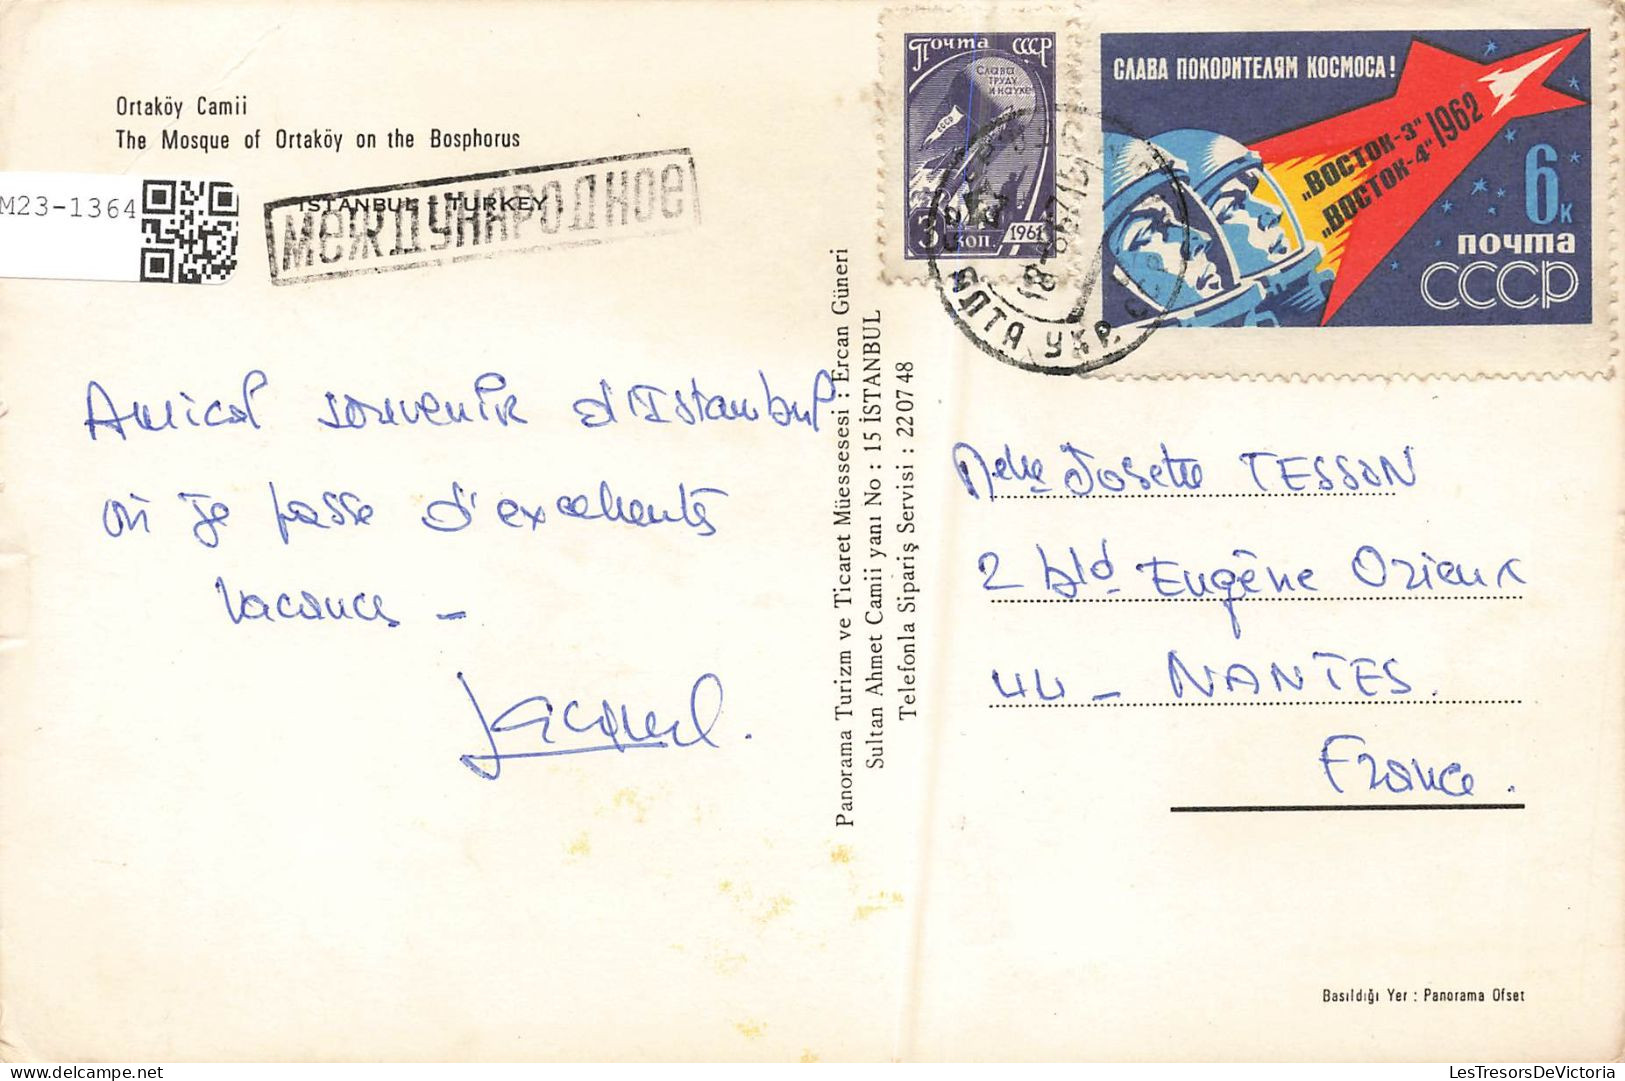 Ortaköy Camii
The Mosque of Ortaköy on the Bosphorus
ISTANBUL TURKEY
МЕЖДУНАРОДНОЕ
M23-1364
Amical souvenir d'Istanbul
où je passe d'excellents
vacances –
Panorama Turizm ve Ticaret Müessesesi : Ercan Güneri
Sultan Ahmet Camii yanı No : 15 İSTANBUL
Telefonla Sipariş Servisi : 22 07 48
Почта СССР
Слава
труду
и науке
СССР
3 коп. 1961
СЛАВА ПОКОРИТЕЛЯМ КОСМОСА!
„ВОСТОК-3"
„ВОСТОК-4" 1962
6 к
почта
СССР
ЯЛТА УКР. ССР
Melle Josette TESSON
2 bld Eugène Orieux
44 – NANTES.
France.
Basıldığı Yer : Panorama Ofset
LesTresorsDeVictoria